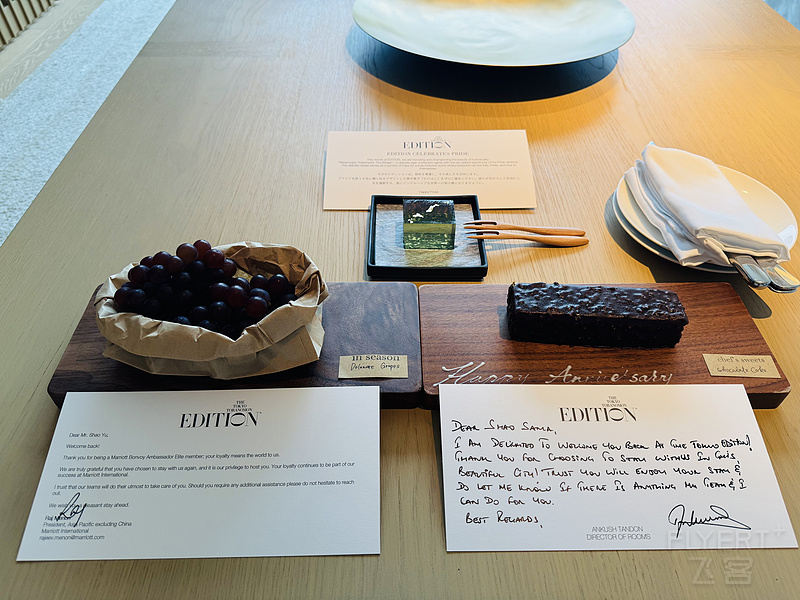 EDITION
EDITION CELEBRATES PRIDE
in season
Delaware Grapes
chef's sweets
chocolate cake
Happy Anniversary
THE
TOKYO
TORANOMON
EDITION
Dear Mr. Shao Yu,
Welcome back!
Thank you for being a Marriott Bonvoy Ambassador Elite member; your loyalty means the world to us.
We are truly grateful that you have chosen to stay with us again, and it is our privilege to host you. Your loyalty continues to be part of our
success at Marriott International.
I trust that our teams will do their utmost to take care of you. Should you require any additional assistance please do not hesitate to reach
out.
We wish pleasant stay ahead.
Raj Menon
President, Asia Pacific excluding China
Marriott International
rajeev.menon@marriott.com
THE
TOKYO
TORANOMON
EDITION
DEAR SHAO SAMA,
I AM DELIGHTED TO WELCOME YOU BACK AT THE TOKYO EDITION!
THANK YOU FOR CHOOSING TO STAY WITH US IN THIS
BEAUTIFUL CITY! TRUST YOU WILL ENJOY YOUR STAY &
DO LET ME KNOW IF THERE IS ANYTHING MY TEAM & I
CAN DO FOR YOU.
BEST REGARDS,
ANKUSH TANDON
DIRECTOR OF ROOMS
FLYERT
飞客